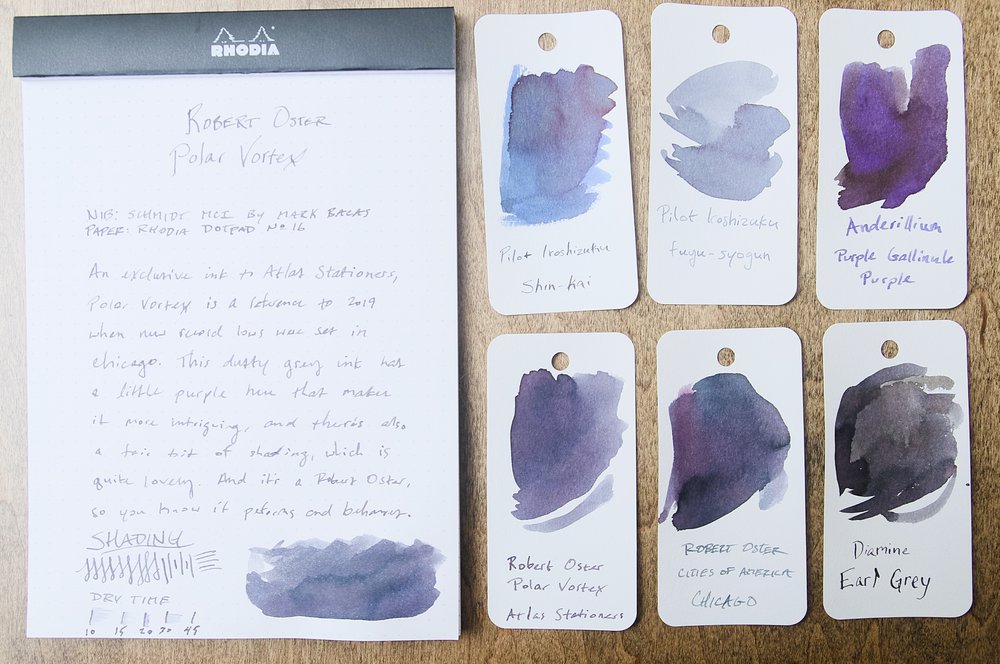 RHODIA
ROBERT OSTER
Polar Vortex
NIB: SCHMIDT MCI BY MARK BACAS
PAPER: RHODIA DOTPAD No 16
An exclusive ink to Atlas Stationers,
Polar Vortex is a reference to 2019
when new record lows were set in
chicago. This dusty grey ink has
a little purple hue that makes
it more intriguing, and there's also
a fair bit of shading, which is
quite lovely. And it's a Robert Oster,
so you know it performs and behaves.
SHADING
DRY TIME
10 15 20 30 45
Pilot Iroshizuku
Shin-kai
Pilot Iroshizuku
fuyu-syogun
Anderillium
Purple Gallinule
Purple
Robert Oster
Polar Vortex
Atlas Stationers
ROBERT OSTER
CITIES OF AMERICA
CHICAGO
Diamine
Earl Grey